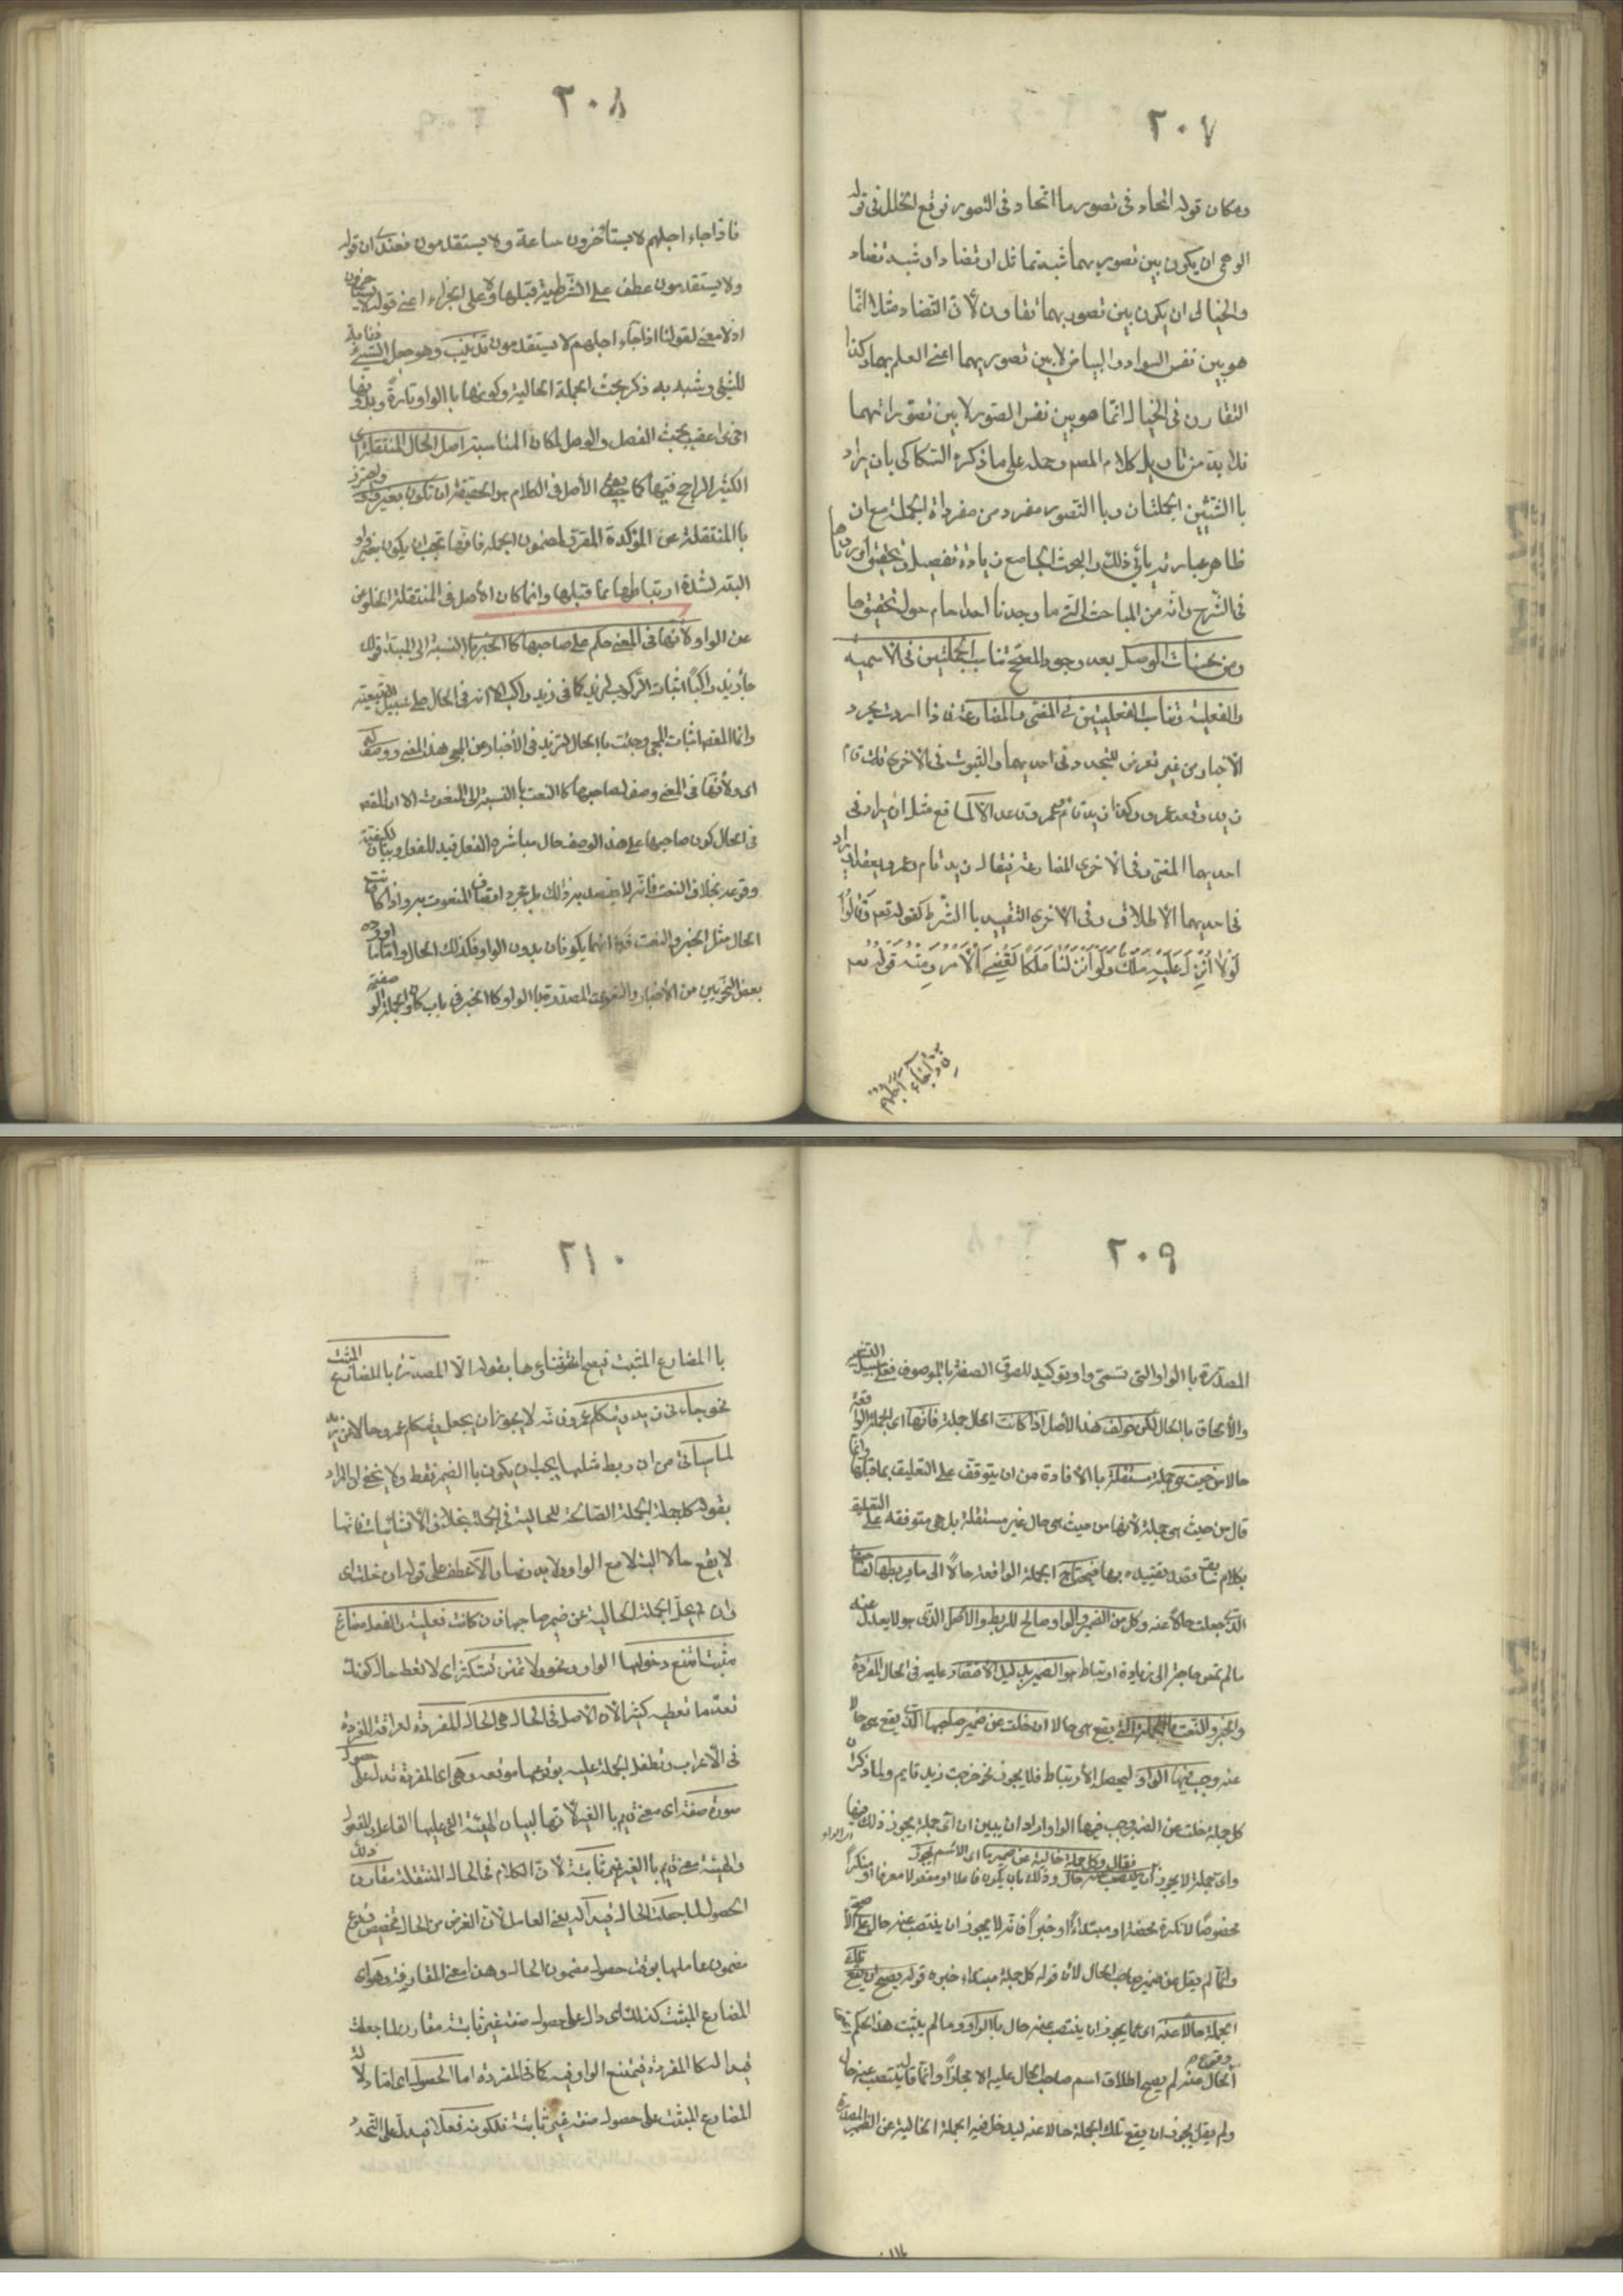 ٢٠٧
ومكان قوله اتحاد فى تصور ما اتحاد فى التصور فوقع الخلل فى قوله
الوهمى ان يكون بين تصوريهما شبه تماثل او تضاد او شبه تضاد
والخيالى ان يكون بين تصوريهما تقارن لأن التضاد مثلا انما
هو بين نفس السواد والبياض لا بين تصوريهما اعنى العلم بهما وكذا
التقارن فى الخيال انما هو بين نفس الصور لا بين تصوراتهما
فلا بد من تاويل كلام المصم وحمله على ما ذكره السكاكى بان يراد
باالشيئين الجملتان وباالتصور مفرد من مفرداة الجملة مع ان
ظاهر عبارته يأبى ذلك والبحث الجامع زيادة تفصيل وتحقيق اوردناها
فى الشرح وانه من المباحث التى ما وجدنا احدا حام حول تحقيقها
ومن محسنات الوصل بعد وجود المصحح تناسب الجملتين فى الاسمية
والفعلية وتناسب الفعليتين فى المضى والمضارعة فاذا اردت مجرد
الاخبار من غير تعرض للتجدد فى احديهما والثبوت فى الاخرى قلت قام
زيد وقعد عمرو وكذا زيد قائم وعمرو قاعد الا لمانع مثل ان يراد فى
احديهما المضى وفى الاخرى المضارعة فيقال زيد قام وعمرو يقعد او يراد
فى احديهما الاطلاق وفى الاخرى التقييد باالشرط كقوله تعم وَقَالُوا
لَوْلا أُنْزِلَ عَلَيْهِ مَلَكٌ وَلَوْ أَنْزَلْنَا مَلَكًا لَقُضِيَ الْأَمْرُ وَمِنْهُ قوله تعم
فاذا جاء اجلهم
٢٠٨
فاذا جاء اجلهم لا يستأخرون ساعة ولا يستقدمون فعندى ان قوله
ولا يستقدمون عطف على الشرطية قبلها لا على الجزاء اعنى قوله لا يستاخرون
اذ لا معنى لقولنا اذا جاء اجلهم لا يستقدمون تذنيب وهو جعل الشيء ذنابة
للشئ وشبه به ذكر بحث الجملة الحالية وكونها باالواو تارة وبدونها
اخرى عقيب بحث الفصل والوصل لمكان المناسبة اصل الحال المنتقلة اى
الكثير الراجح فيها كما يقال الأصل فى الكلام هو الحقيقة ان تكون بغير واو واحترز
باالمنتقلة عن المؤكدة المقررة لمضمون الجملة فانها يجب ان يكون بغير واو
البتة لشدة ارتباطها بما قبلها وانما كان الأصل فى المنتقلة الخلو
عن الواو لأنها فى المعنى حكم على صاحبها كاالخبر باالنسبة الى المبتدا فقولك
جاء زيد راكبًا اثبات الركوب لزيد كما فى زيد راكب الا انه فى الحال على سبيل التبعية
وانما المقصم اثبات المجى وجئت باالحال لتزيد فى الأخبار عن المجى هذا المعنى ووصف له
اى ولأنها فى المعنى وصف لصاحبها كاالنعت باالنسبة الى المنعوت الا ان المقصم
فى الحال كون صاحبها على هذا الوصف حال مباشرة الفعل فهى قيد للفعل وبيان لكيفية
وقوعه بخلاف النعت فانه لا يقصد به ذلك بل مجرد اتصاف المنعوت به واذا كانت
الحال مثل الخبر والنعت فكما انهما يكونان بدون الواو فكذلك الحال واما ما اورده
بعض النحويين من الأخبار والنعوت المصدرة باالواو كاالخبر فى باب كان والجملة الوصفية
٢٠٩
المصدرة باالواو التى تسمى واو توكيد للصوق الصفة باالموصوف فعلى سبيل التشبيه
والألحاق باالحال لكن خولف هذا الأصل اذا كانت الحال جملة فانها اى الجملة الواقعة
حالا من حيث هى جملة مستقلة باالأفادة من ان يتوقف على التعليق بما قبلها وانما
قال من حيث هى جملة لأنها من حيث هى حال غير مستقلة بل هى متوقفه على التعليق
بكلام سابق قصد تقييده بها فيحتاج الجملة الواقعة حالاً الى ما يربطها بصاحبها
الذى جعلت حالاً عنه وكل من الضمير والواو صالح للربط والاصل الذى هو لا يعدل عنه
ما لم تمس حاجة الى زيادة ارتباط هو الضمير بدليل الأقتصار عليه فى الحال المفردة
والخبر والنعت فاالجملة التى يقع هى حالا ان خلت عن ضمير صاحبها الذى يقع هى حالا
عنه وجب فيها الواو ليحصل الأرتباط فلا يجوز خرجت زيد قايم ولما ذكر ان
كل جملة خلت عن الضمير وجب فيها الواو اراد ان يبين ان اى جملة يجوز ذلك فيها
واى جملة لا يجوز فقال وكل جملة خالية عن ضمير ما اى الاسم الذى يجوز
ان ينتصب عنه حال وذلك بان يكون فاعلا او مفعولا معرفا او منكرًا
مخصوصًا لا نكرة محضة او مبتداءً او خبراً فانه لا يجوز ان ينتصب عنه حال على الاصح
وانما لم يقل عن ضمير صاحب الحال لأن قوله كل جملة مبتداء خبره قوله يصح ان يقع تلك
الجملة حالاً عنه اى عما يجوز ان ينتصب عنه حال باالواو وما لم يثبت هذا الحكم
الحال عنه لم يصح اطلاق اسم صاحب الحال عليه الا مجازاً وانما قال ينتصب عنه حال
ولم يقل يجوز ان يقع تلك الجملة حالا عنه ليدخل فيه الجملة الخالية عن الضمير المصدرة
٢١٠
باالمضارع المثبت فيصح استثناؤها بقوله الا المصدرة باالمضارع المثبت
نحو جاءنى زيد ويتكلم عمرو فانه لا يجوز ان يجعل ويتكلم عمرو حالا عن زيد
لما سيأتى من ان ربط مثلها يجب ان يكون باالضمير فقط ولا يخفى ان المراد
بقوله كل جملة الجملة الصالحة للحالية فى الجملة بخلاف الأنشائيات فانها
لا يقع حالا البتة لا مع الواو ولا بدونها والا عطف على قوله ان خلت اى
وان لم يخل الجملة الحالية عن ضمير صاحبها فان كانت فعلية والفعل مضارع
مثبت امتنع دخولها الواو ونحو ولا تمنن تستكثر اى لا تعط حال كونك
تعد ما تعطيه كثيرا لأن الاصل فى الحال هى الحال المفردة لعراقة المفردة
فى الأعراب وتطفل الجملة عليه بوقوعها موقعه وهى اى المفردة تدل على حصول
صورة صفة اى معنى قايم باالغير لأنها لبيان الهيئة التى عليها الفاعل او المفعول
والهيئة معنى قايم باالغير غير ثابتة لأن الكلام فى الحال المنتقلة مقارن ذلك
الحصول لما جعلت الحال قيدا له يعنى العامل لأن الغرض من الحال تخصيص وقوع
مضمون عاملها بوقت حصول مضمون الحال وهذا معنى المقارنة وهو اى
المضارع المثبت كذلك اى دال على حصول صفة غير ثابتة مقارن لما جعلت
قيدا له كاالمفردة فيمتنع الواو فيه كما فى المفردة اما الحصول اى اما دلالة
المضارع المثبت على حصول صفة غير ثابتة فلكونه فعلا فيدل على التجدد